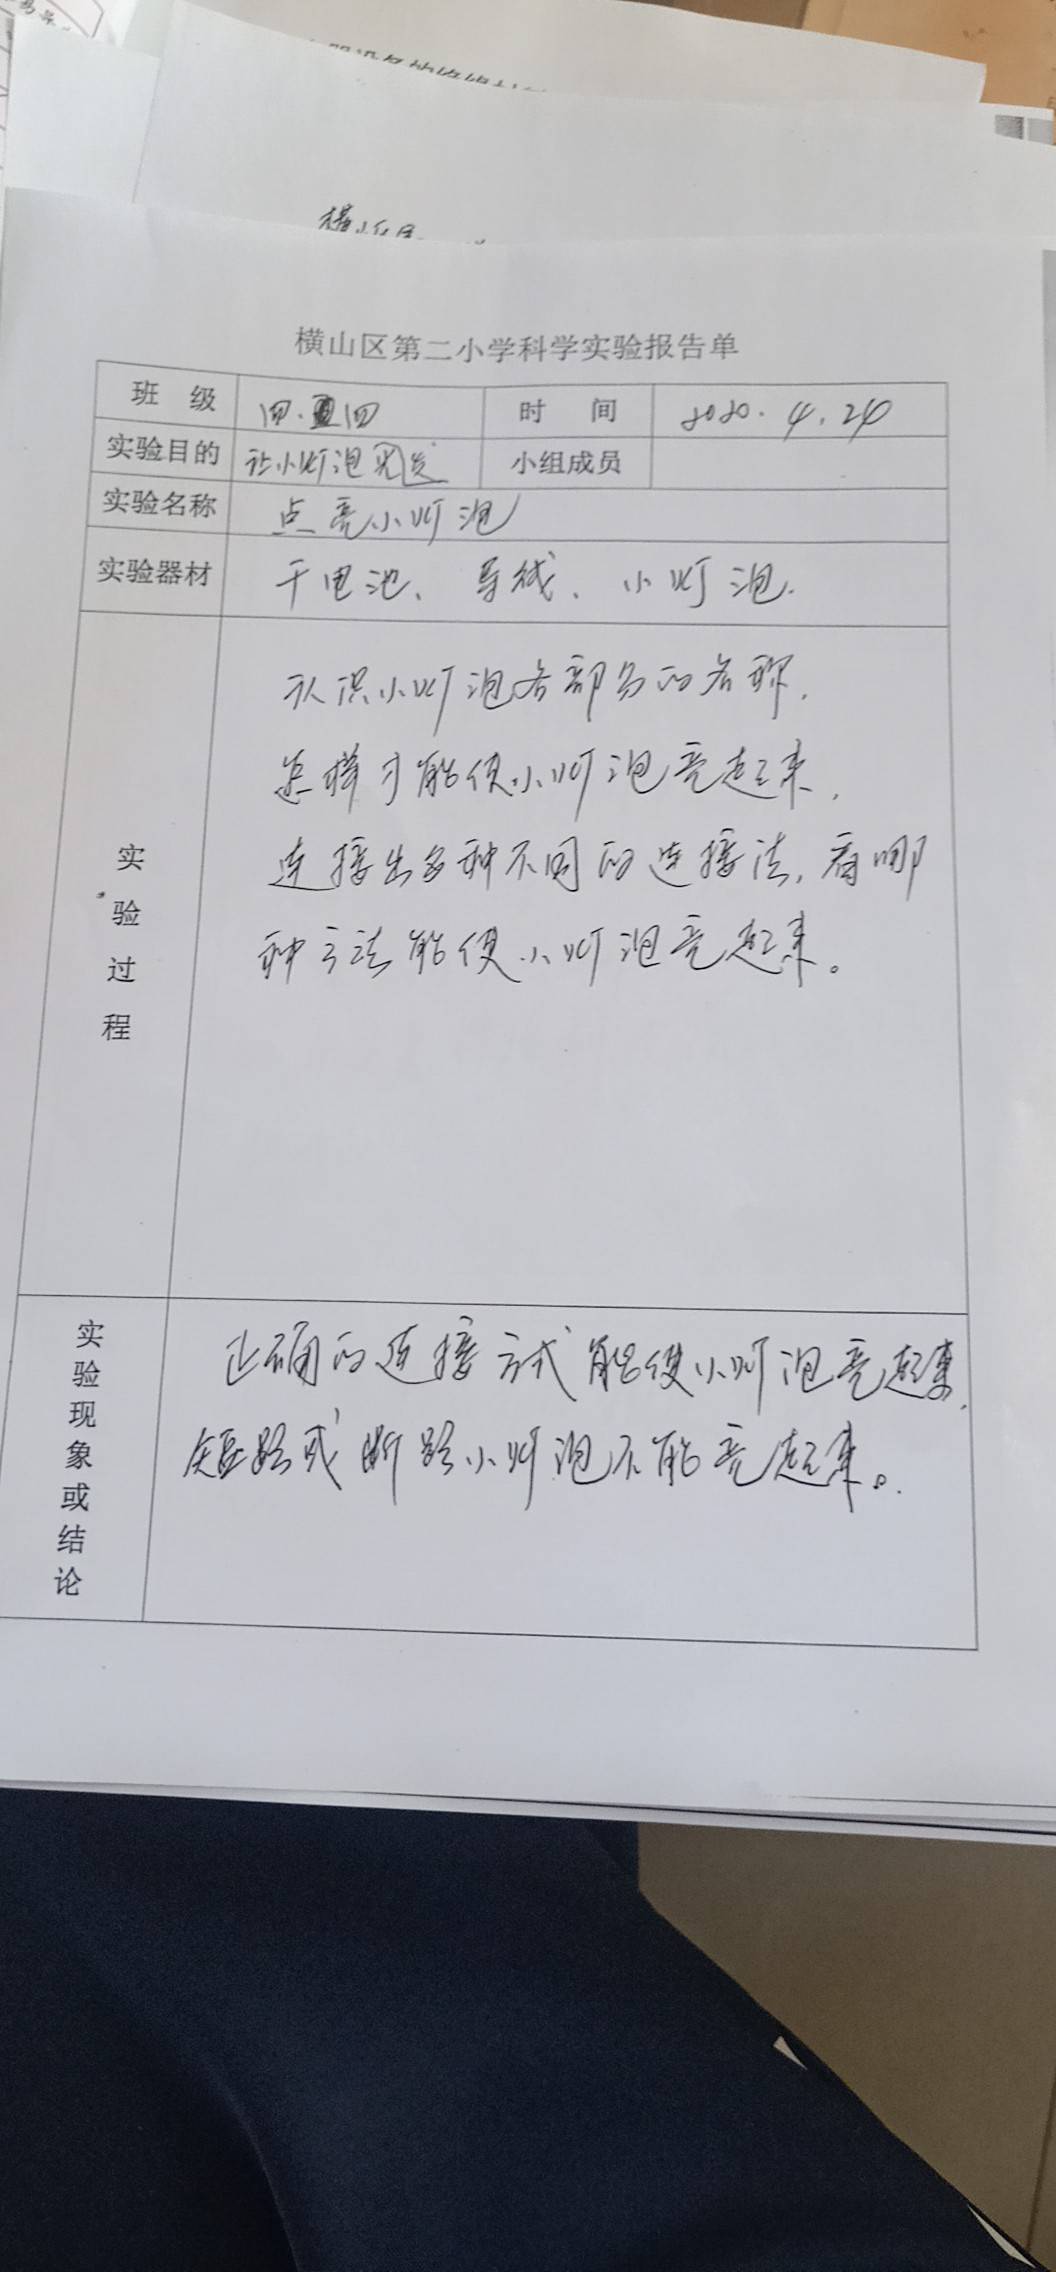 横山区第二小学科学实验报告单
班 级 四.四 时 间 2020.4.24
实验目的 让小灯泡 小组成员
实验名称 点亮小灯泡
实验器材 干电池、导线、小灯泡.
实验过程
认识小灯泡各部分的名称,
怎样才能使小灯泡亮起来,
连接出多种不同的连接法,看哪
种方法能使小灯泡亮起来。
实验现象或结论
正确的连接方式能使小灯泡亮起来,
短路或断路小灯泡不能亮起来。